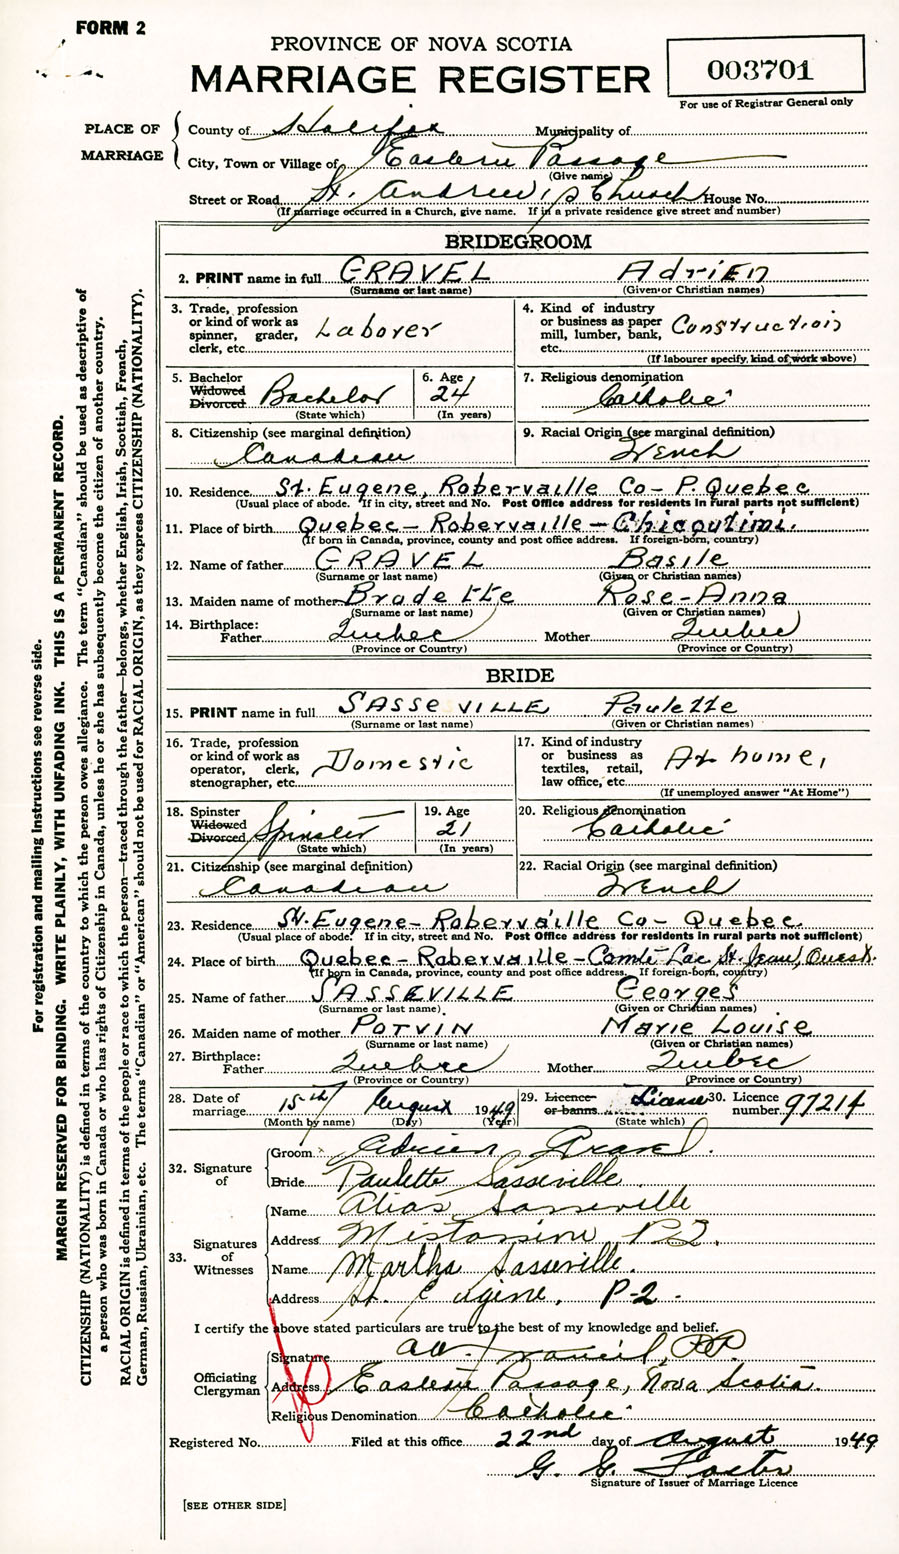 FORM 2
PROVINCE OF NOVA SCOTIA
MARRIAGE REGISTER
003701
For use of Registrar General only
PLACE OF MARRIAGE
County of Halifax Municipality of
City, Town or Village of Eastern Passage
(Give name)
Street or Road St. Andrew's Church House No.
(If marriage occurred in a Church, give name. If in a private residence give street and number)
For registration and mailing instructions see reverse side.
MARGIN RESERVED FOR BINDING. WRITE PLAINLY, WITH UNFADING INK. THIS IS A PERMANENT RECORD.
CITIZENSHIP (NATIONALITY) is defined in terms of the country to which the person owes allegiance. The term "Canadian" should be used as descriptive of
a person who was born in Canada or who has rights of Citizenship in Canada, unless he or she has subsequently become the citizen of another country.
RACIAL ORIGIN is defined in terms of the people or race to which the person—traced through the father—belongs, whether English, Irish, Scottish, French,
German, Russian, Ukrainian, etc. The terms "Canadian" or "American" should not be used for RACIAL ORIGIN, as they express CITIZENSHIP (NATIONALITY).
BRIDEGROOM
2. PRINT name in full GRAVEL Adrien
(Surname or last name) (Given or Christian names)
3. Trade, profession or kind of work as spinner, grader, clerk, etc. Laborer
4. Kind of industry or business as paper mill, lumber, bank, etc. Construction
(If labourer specify, kind of work above)
5. Bachelor Widowed Divorced Bachelor
(State which)
6. Age 24
(In years)
7. Religious denomination Catholic
8. Citizenship (see marginal definition) Canadian
9. Racial Origin (see marginal definition) French
10. Residence St. Eugene, Robervaille Co - P. Quebec
(Usual place of abode. If in city, street and No. Post Office address for residents in rural parts not sufficient)
11. Place of birth Quebec - Robervaille - Chicoutimi.
(If born in Canada, province, county and post office address. If foreign-born, country)
12. Name of father GRAVEL Basile
(Surname or last name) (Given or Christian names)
13. Maiden name of mother Bradette Rose-Anna
(Surname or last name) (Given or Christian names)
14. Birthplace: Father Quebec Mother Quebec
(Province or Country) (Province or Country)
BRIDE
15. PRINT name in full SASSEVILLE Paulette
(Surname or last name) (Given or Christian names)
16. Trade, profession or kind of work as operator, clerk, stenographer, etc. Domestic
17. Kind of industry or business as textiles, retail, law office, etc. At home,
(If unemployed answer "At Home")
18. Spinster Widowed Divorced Spinster
(State which)
19. Age 21
(In years)
20. Religious denomination Catholic
21. Citizenship (see marginal definition) Canadian
22. Racial Origin (see marginal definition) French
23. Residence St. Eugene - Robervaille Co - Quebec.
(Usual place of abode. If in city, street and No. Post Office address for residents in rural parts not sufficient)
24. Place of birth Quebec - Robervaille - Comté Lac St. Jean, Ouest.
(If born in Canada, province, county and post office address. If foreign-born, country)
25. Name of father SASSEVILLE Georges
(Surname or last name) (Given or Christian names)
26. Maiden name of mother POTVIN Marie Louise
(Surname or last name) (Given or Christian names)
27. Birthplace: Father Quebec Mother Quebec
(Province or Country) (Province or Country)
28. Date of marriage 15th August 1949
(Month by name) (Day) (Year)
29. Licence or banns License
(State which)
30. Licence number 97214
32. Signature of
Groom Adrien Gravel.
Bride Paulette Sasseville
33. Signatures of Witnesses
Name Alias Sasseville
Address Mistassini P.Q.
Name Martha Sasseville.
Address St. Eugène, P-2.
I certify the above stated particulars are true to the best of my knowledge and belief.
Officiating Clergyman
Signature
Address Eastern Passage, Nova Scotia.
Religious Denomination Catholic
Registered No. Filed at this office 22nd day of August 1949
G. C. Foster
Signature of Issuer of Marriage Licence
[SEE OTHER SIDE]